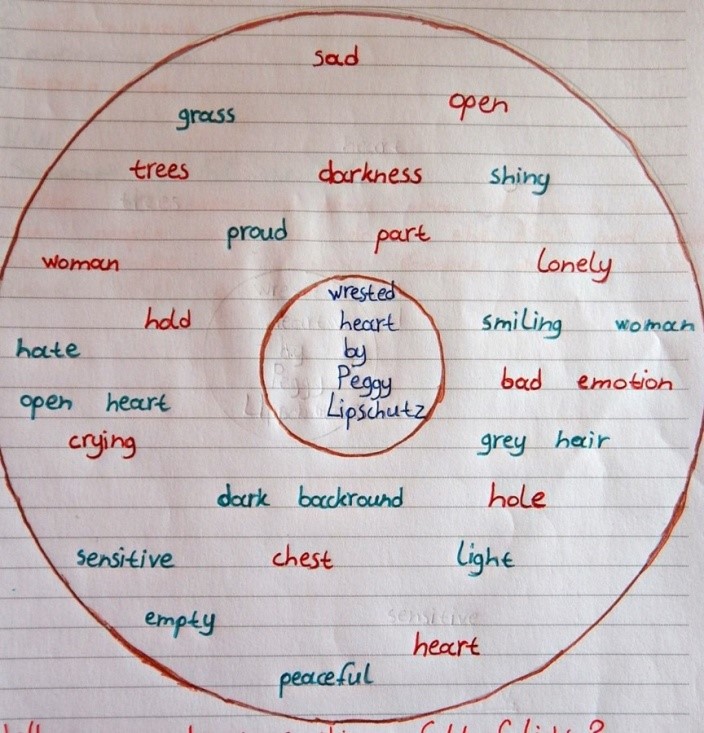 sad
open
grass
trees
darkness
shing
proud
part
woman
lonely
wrested
heart
by
Peggy
Lipschutz
hold
smiling woman
hate
bad emotion
open heart
crying
grey hair
dark backround
hole
sensitive
chest
light
empty
sensitive
heart
peaceful